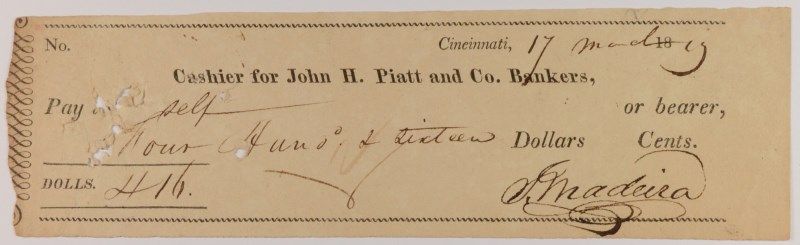 No. Cincinnati, 17 March 1819
Cashier for John H. Piatt and Co. Bankers,
Pay self or bearer,
Four Hund & sixteen Dollars Cents.
DOLLS. 416. J. Madeira